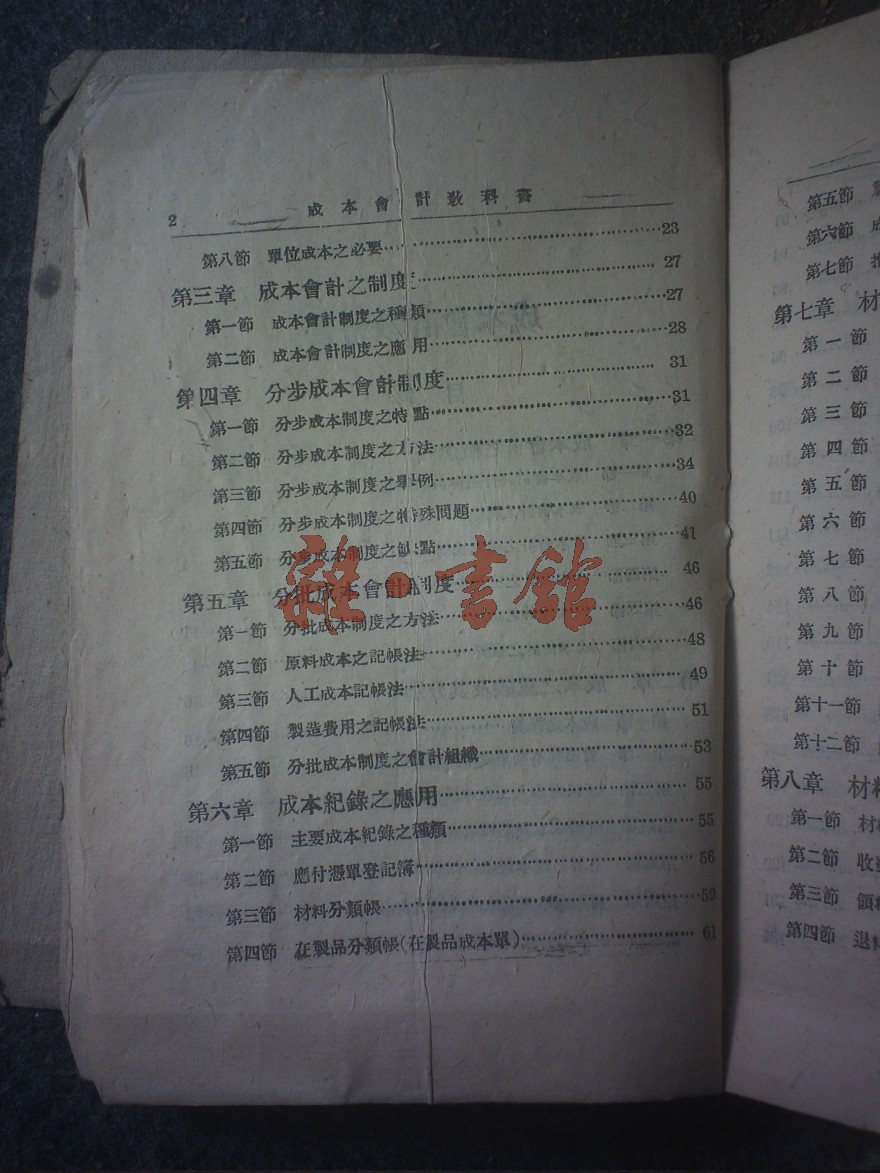 2 成本會計教科書
第八節 單位成本之必要……23
第三章 成本會計之制度……27
第一節 成本會計制度之種類……27
第二節 成本會計制度之應用……28
第四章 分步成本會計制度……31
第一節 分步成本制度之特點……31
第二節 分步成本制度之方法……32
第三節 分步成本制度之舉例……34
第四節 分步成本制度之特殊問題……40
第五節 分步成本制度之缺點……41
第五章 分批成本會計制度……46
第一節 分批成本制度之方法……46
第二節 原料成本之記帳法……48
第三節 人工成本記帳法……49
第四節 製造費用之記帳法……51
第五節 分批成本制度之會計組織……53
第六章 成本紀錄之應用……55
第一節 主要成本紀錄之種類……55
第二節 應付憑單登記簿……56
第三節 材料分類帳……59
第四節 在製品分類帳(在製品成本單)……61
雜·書館
第五節
第六節 成
第七節 推
第七章 材
第一節
第二節
第三節
第四節
第五節
第六節
第七節
第八節
第九節
第十節
第十一節
第十二節
第八章 材料
第一節 材
第二節 收
第三節 領料
第四節 退